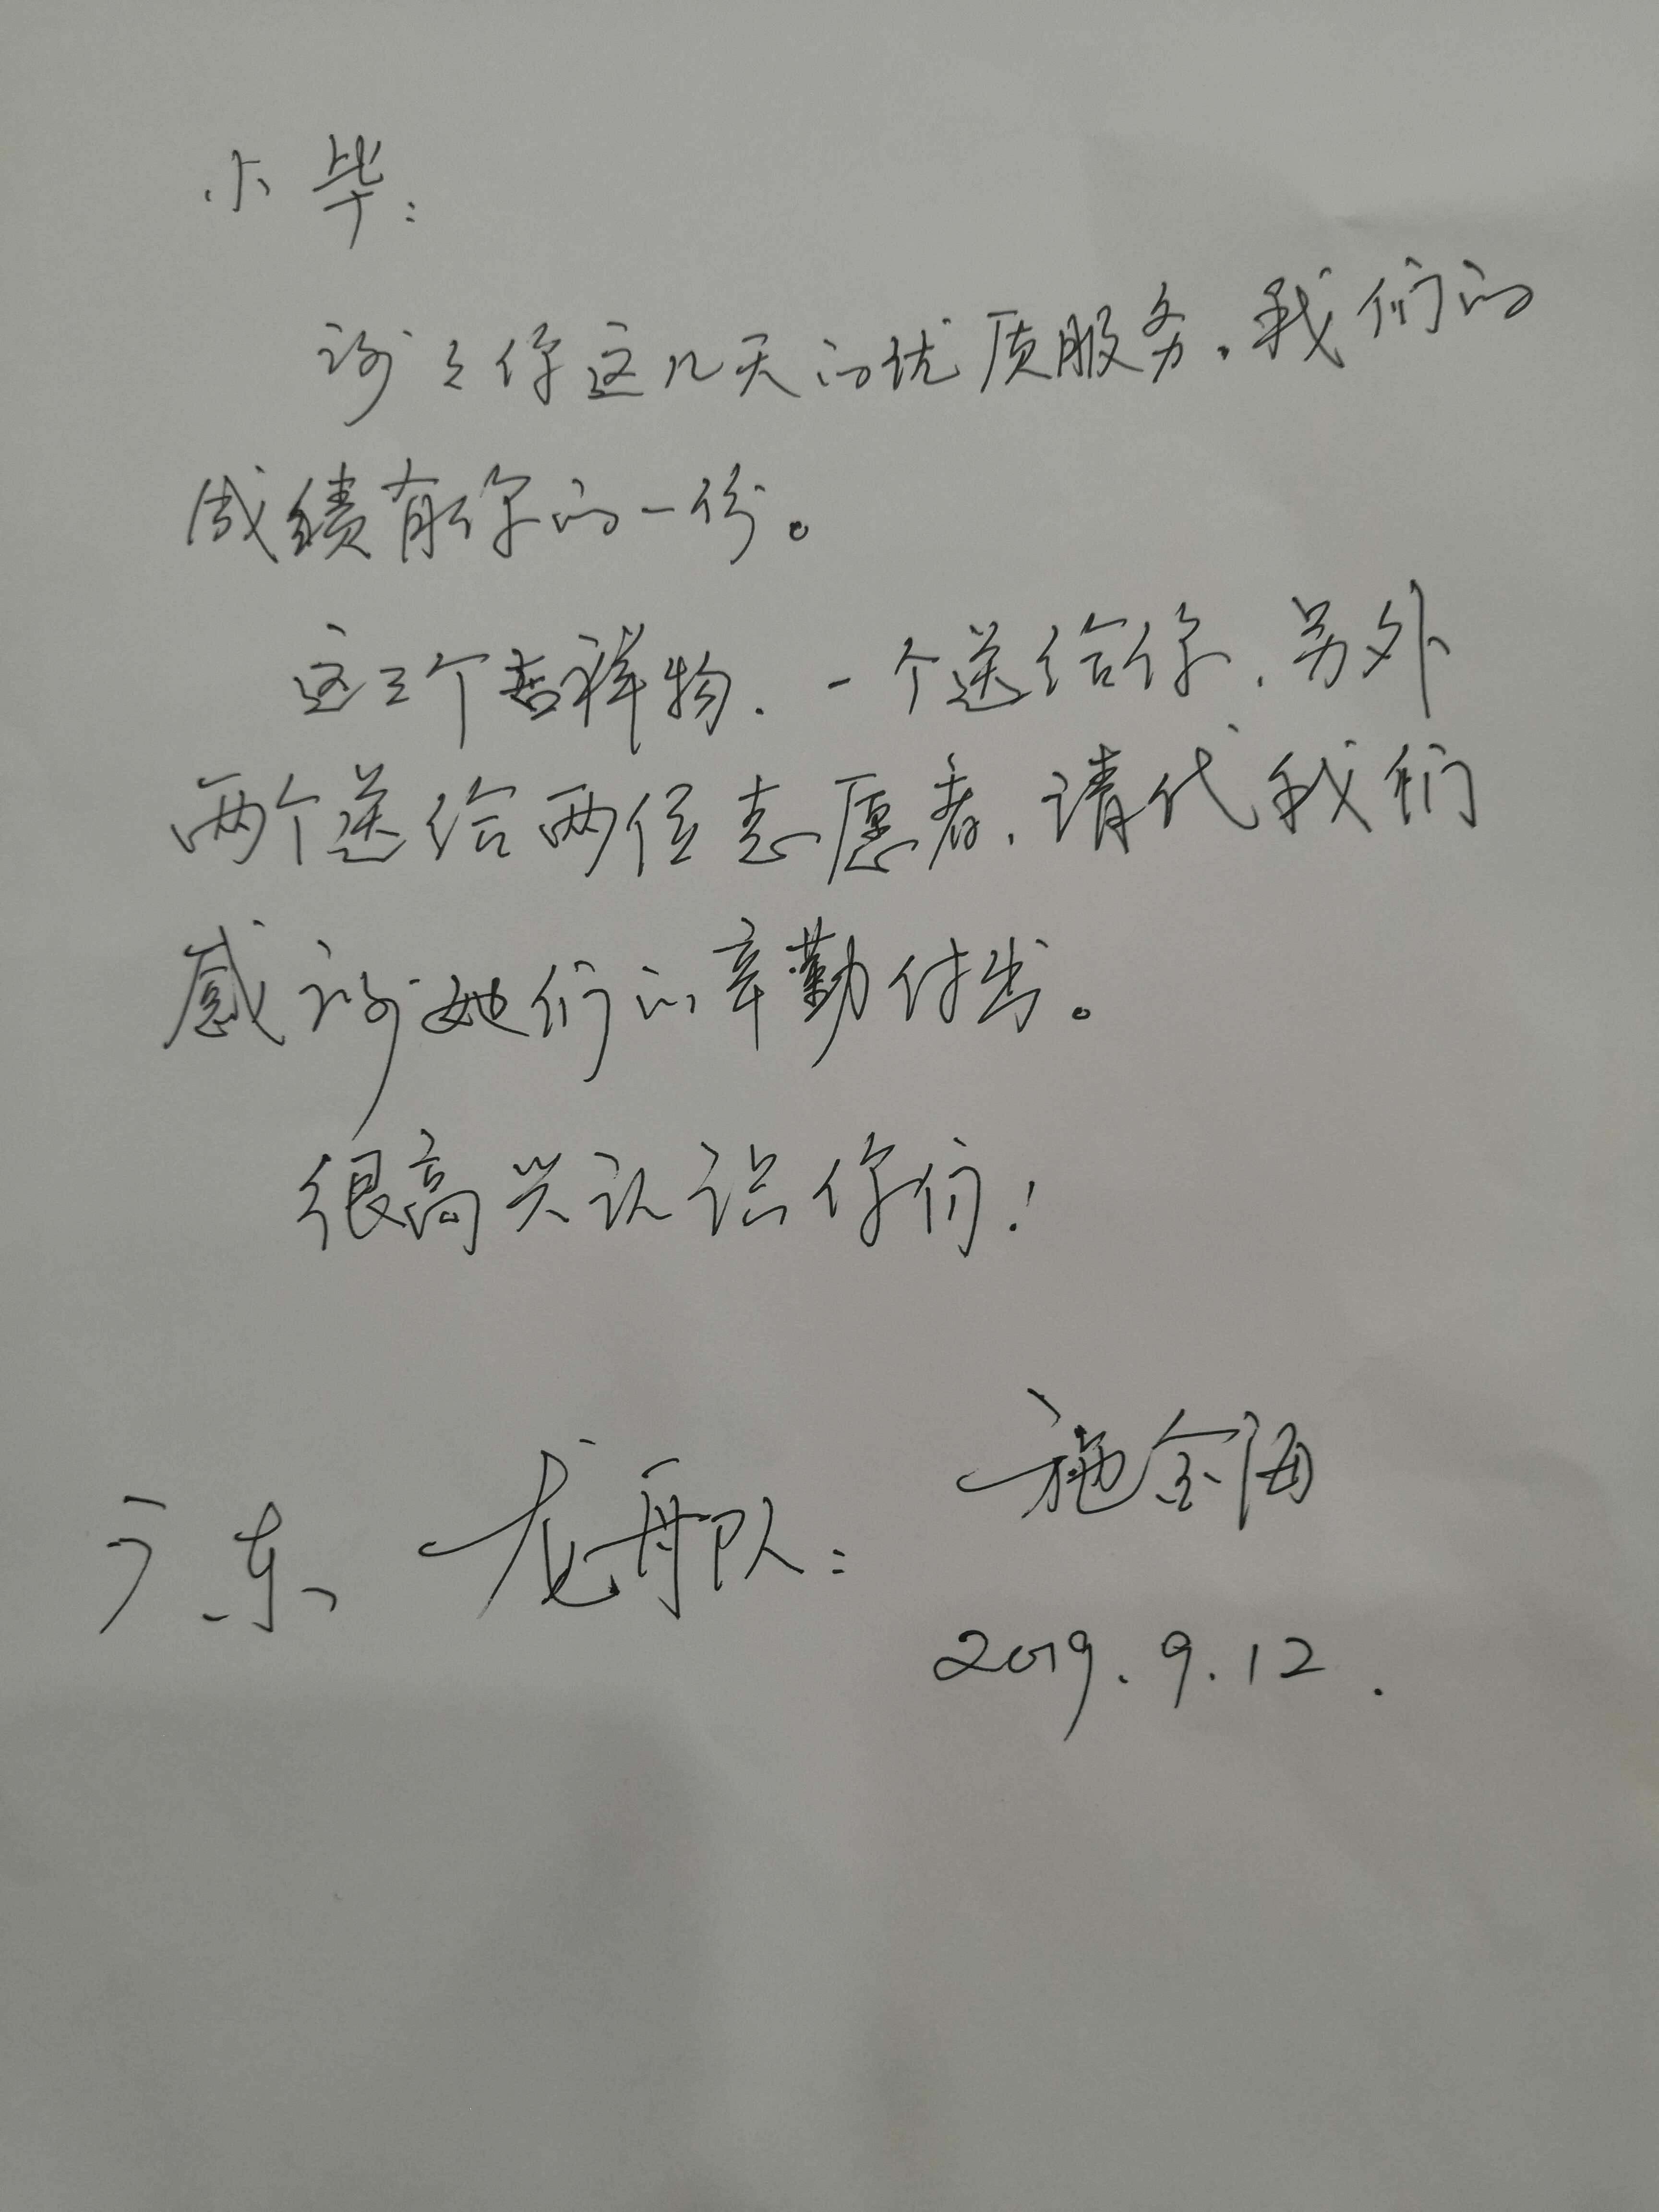 小毕：
谢谢你这几天的优质服务，我们的
成绩有你的一份。
这三个吉祥物，一个送给你，另外
两个送给两位志愿者，请代我们
感谢她们的辛勤付出。
很高兴认识你们！
广东龙舟队：施金海
2019.9.12.